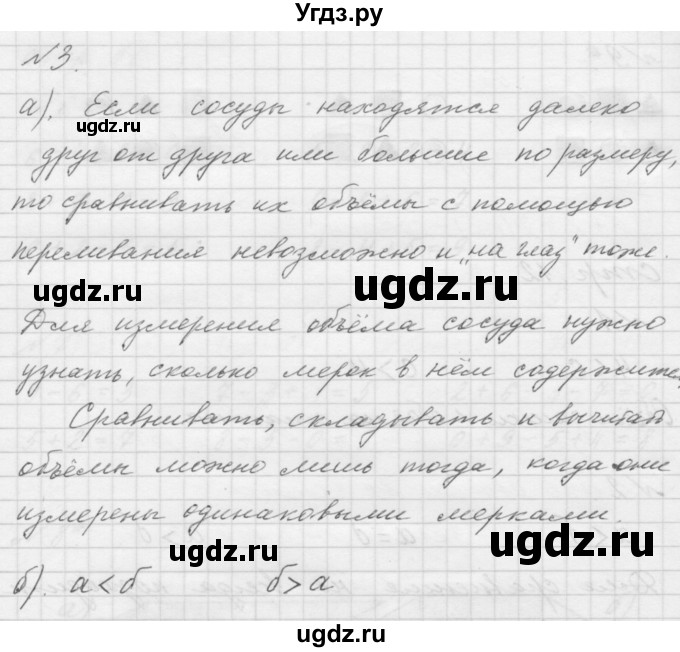 Угдз.ру
№3.
а). Если сосуды находятся далеко
ugdz.ru
друг от друга или большие по размеру,
то сравнивать их объёмы с помощью
переливания невозможно и „на глаз" тоже.
ugdz.ru ugdz.ru
Для измерения объёма сосуда нужно
узнать, сколько мерок в нём содержится
Сравнивать, складывать и вычитат
объёмы можно лишь тогда, когда они
измерены одинаковыми мерками.
ugdz.ru ugdz.ru
б). а < б б > а
ugdz.ru